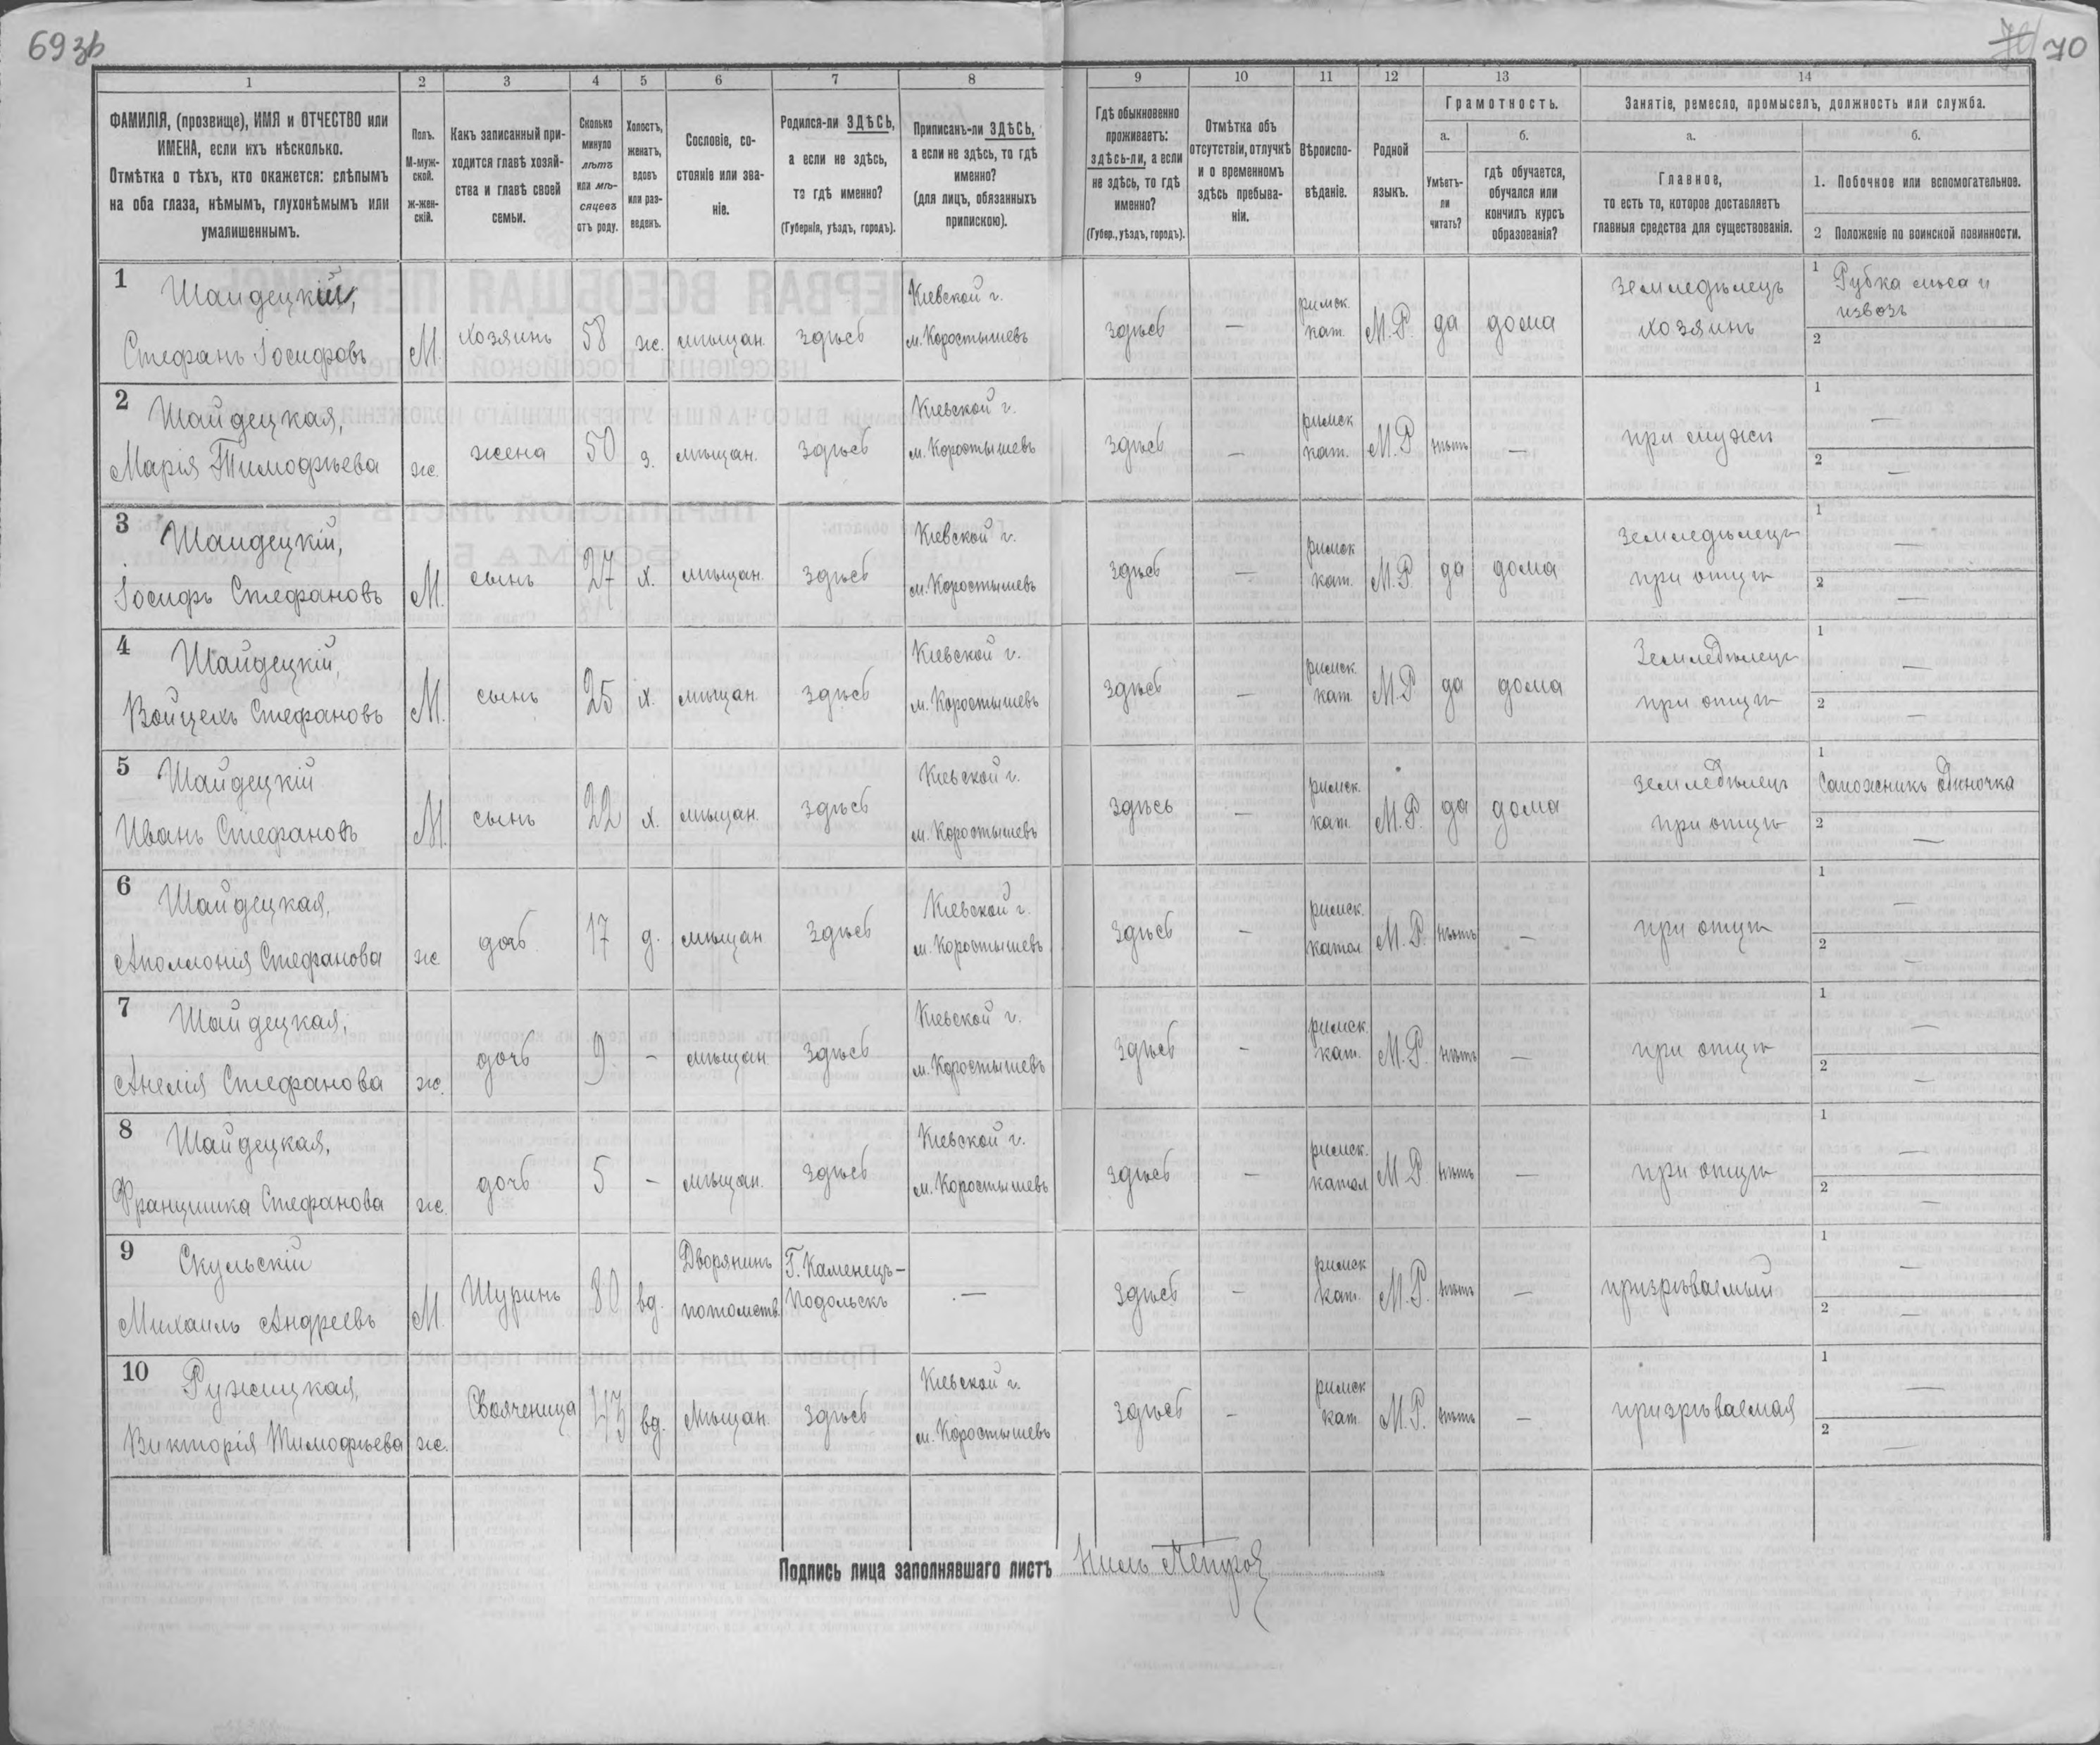 69 зв
70
1 2 3 4 5 6 7 8 9 10 11 12 13 14
ФАМИЛІЯ, (прозвище), ИМЯ и ОТЧЕСТВО или
ИМЕНА, если ихъ нѣсколько.
Отмѣтка о тѣхъ, кто окажется: слѣпымъ
на оба глаза, нѣмымъ, глухонѣмымъ или
умалишеннымъ.
Полъ.
М-муж-
ской.
Ж-жен-
скій.
Какъ записанный при-
ходится главѣ хозяй-
ства и главѣ своей
семьи.
Сколько
минуло
лѣтъ
или мѣ-
сяцевъ
отъ роду.
Холостъ,
женатъ,
вдовъ
или раз-
веденъ.
Сословіе, со-
стояніе или зва-
ніе.
Родился-ли ЗДѢСЬ,
а если не здѣсь,
то гдѣ именно?
(Губернія, уѣздъ, городъ).
Приписанъ-ли ЗДѢСЬ,
а если не здѣсь, то гдѣ
именно?
(для лицъ, обязанныхъ
припискою).
Гдѣ обыкновенно
проживаетъ:
здѣсь-ли, а если
не здѣсь, то гдѣ
именно?
(Губер., уѣздъ, городъ).
Отмѣтка объ
отсутствіи, отлучкѣ
и о временномъ
здѣсь пребыва-
ніи.
Вѣроиспо-
вѣданіе.
Родной
языкъ.
Грамотность.
а.
Умѣетъ-
ли
читать?
б.
гдѣ обучается,
обучался или
кончилъ курсъ
образованія?
Занятіе, ремесло, промыселъ, должность или служба.
а.
Главное,
то есть то, которое доставляетъ
главныя средства для существованія.
б.
1. Побочное или вспомогательное.
2 Положеніе по воинской повинности.
1 Шайдецкій,
Стефанъ Іосифовъ
М.
хозяинъ
58
ж.
мѣщан.
здѣсь
Кіевской г.
м. Коростышевъ
здѣсь
—
римск.
кат.
М.Р.
да
дома
Земледѣлецъ
хозяинъ
1 Рубка лѣса и
извозъ
2
2 Шайдецкая,
Марія Тимофѣева
ж.
жена
50
з.
мѣщан.
здѣсь
Кіевской г.
м. Коростышевъ
здѣсь
—
римск
кат.
М.Р
нѣтъ
—
при мужѣ
1 —
2 —
3 Шайдецкій,
Іосифъ Стефановъ
М.
сынъ
27
х.
мѣщан.
здѣсь
Кіевской г.
м. Коростышевъ
здѣсь
—
римск
кат.
М.Р
да
дома
Земледѣлецъ
при отцѣ
1 —
2 —
4 Шайдецкій,
Войцехъ Стефановъ
М.
сынъ
25
х.
мѣщан.
здѣсь
Кіевской г.
м. Коростышевъ
здѣсь
—
римск.
кат.
М.Р
да
дома
Земледѣлецъ
при отцѣ
1 —
2 —
5 Шайдецкій
Иванъ Стефановъ
М.
сынъ
22
х.
мѣщан.
здѣсь
Кіевской г.
м. Коростышевъ
здѣсь
—
римск.
кат.
М.Р.
да
дома
Земледѣлецъ
при отцѣ
1 Сапожникъ одиночка
2 —
6 Шайдецкая,
Аполлонія Стефанова
ж.
дочь
17
д.
мѣщан
здѣсь
Кіевской г.
м. Коростышевъ
здѣсь
—
римск.
катол
М.Р.
нѣтъ
—
при отцѣ
1 —
2 —
7 Шайдецкая,
Анелія Стефанова
ж.
дочь
9
—
мѣщан
здѣсь
Кіевской г.
м. Коростышевъ
здѣсь
—
римск.
кат.
М.Р.
нѣтъ
—
при отцѣ
1 —
2 —
8 Шайдецкая,
Францишка Стефанова
ж.
дочь
5
—
мѣщан.
здѣсь
Кіевской г.
м. Коростышевъ
здѣсь
—
римск.
катол
М Р
нѣтъ
—
при отцѣ
1 —
2 —
9 Скульскій
Михаилъ Андреевъ
М.
Шуринъ
80
вд.
Дворянинъ
потомств.
Г. Каменецъ-
Подольскъ
—
здѣсь
—
римск
кат.
М.Р.
нѣтъ
—
призрѣваемый
1 —
2 —
10 Ружицкая,
Викторія Тимофѣева
ж.
Свояченица
43
вд.
Мѣщан.
здѣсь
Кіевской г.
м. Коростышевъ
здѣсь
—
римск
кат.
М.Р.
нѣтъ
—
призрѣваемая
1 —
2 —
Подпись лица заполнявшаго листъ Нилъ Петров